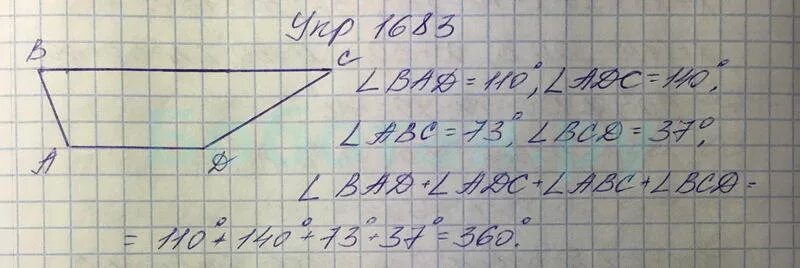 Упр 1683
B C
A D
∠BAD = 110°, ∠ADC = 140°,
∠ABC = 73°, ∠BCD = 37°,
∠BAD + ∠ADC + ∠ABC + ∠BCD =
= 110° + 140° + 73° + 37° = 360°.